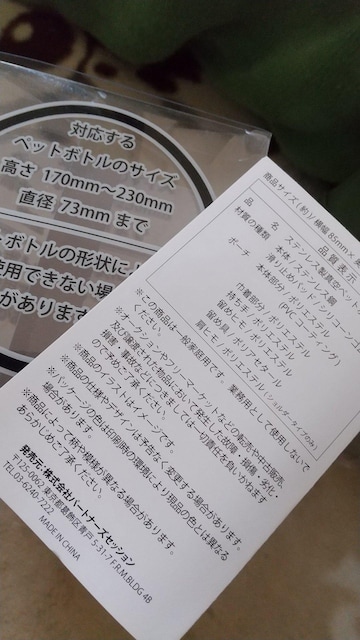 対応する
ペットボトルのサイズ
高さ 170mm～230mm
直径 73mm まで
トボトルの形状に
使用できない場
があります
商品サイズ(約)/ 横幅 85mm
品質表示
品 名 ステンレス製真空ペッ
材質の種類 本体/ステンレス鋼
滑り止めパッド/シリコーンゴ
ポーチ 本体部分/ポリエステル
(PVCコーティング)
巾着部分/ポリエステル
持ち手/ポリエステル
留めヒモ/ポリエステル
留め具/ポリアセタール
肩ヒモ/ポリエステル(ショルダータイプのみ)
※この商品は一般家庭用です。業務用として使用しないで
ください。
※オークションやフリーマーケットなどの転売や中古販売、
及び譲渡された物品において発生した故障・損傷・劣化・
損害・事故などにつきましては、一切責任を負いかねます
ので予めご了承ください。
※商品のイラストはイメージです。
※商品の仕様やデザインは予告なく変更する場合があります。
※パッケージの色は印刷時の環境により現品の色とは異なる
場合があります。
※商品によって柄や模様が異なる場合があります。
あらかじめご了承ください。
発売元:株式会社パートナーズセッション
〒125-0062 東京都葛飾区青戸 5-31-7 F.R.M.BLDG 4B
TEL 03-6240-7222
MADE IN CHINA